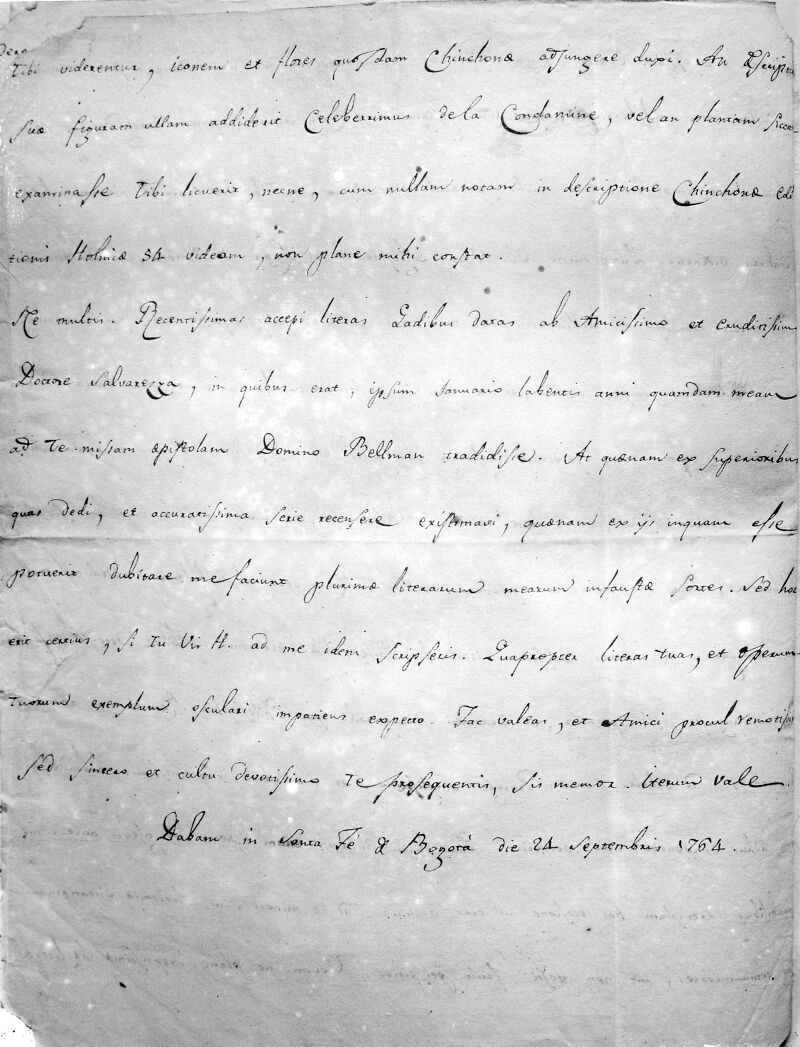 Tibi viderentur, iconem et flores quosdam Chinchonæ adjungere duxi. An descriptio
suæ figuram ullam addiderit Celeberrimus de la Condamine, vel an plantam siccam
examinasse Tibi licuerit, necne, cum nullam notam in descriptione Chinchonæ edi
tionis Holmiæ 54 videam, non plane mihi constat.
Ne multis. Recentissimas accepi literas Gadibus datas ab Amicissimo et eruditissimo
Doctore Salvarezza, in quibus erat, ipsum Ianuario labentis anni quamdam meam
ad Te missam epistolam Domino Bellman tradidisse. At quænam ex superioribus
quas dedi, et accuratissima serie recensere existimavi, quænam ex ijs inquam esse
potuerit dubitare me faciunt plurimæ literarum mearum infaustæ sortes. Sed hoc
erit certius, si tu Vir H. ad me idem scripseris. Quapropter literas tuas, et operum
tuorum exemplum osculari impatiens expecto. Fac valeas, et Amici procul remotis
sed sincero et cultu devotissimo Te prosequentis, sis memor. Iterum vale.
Dabam in Santa Fé de Bogotà die 24 Septembris 1764.